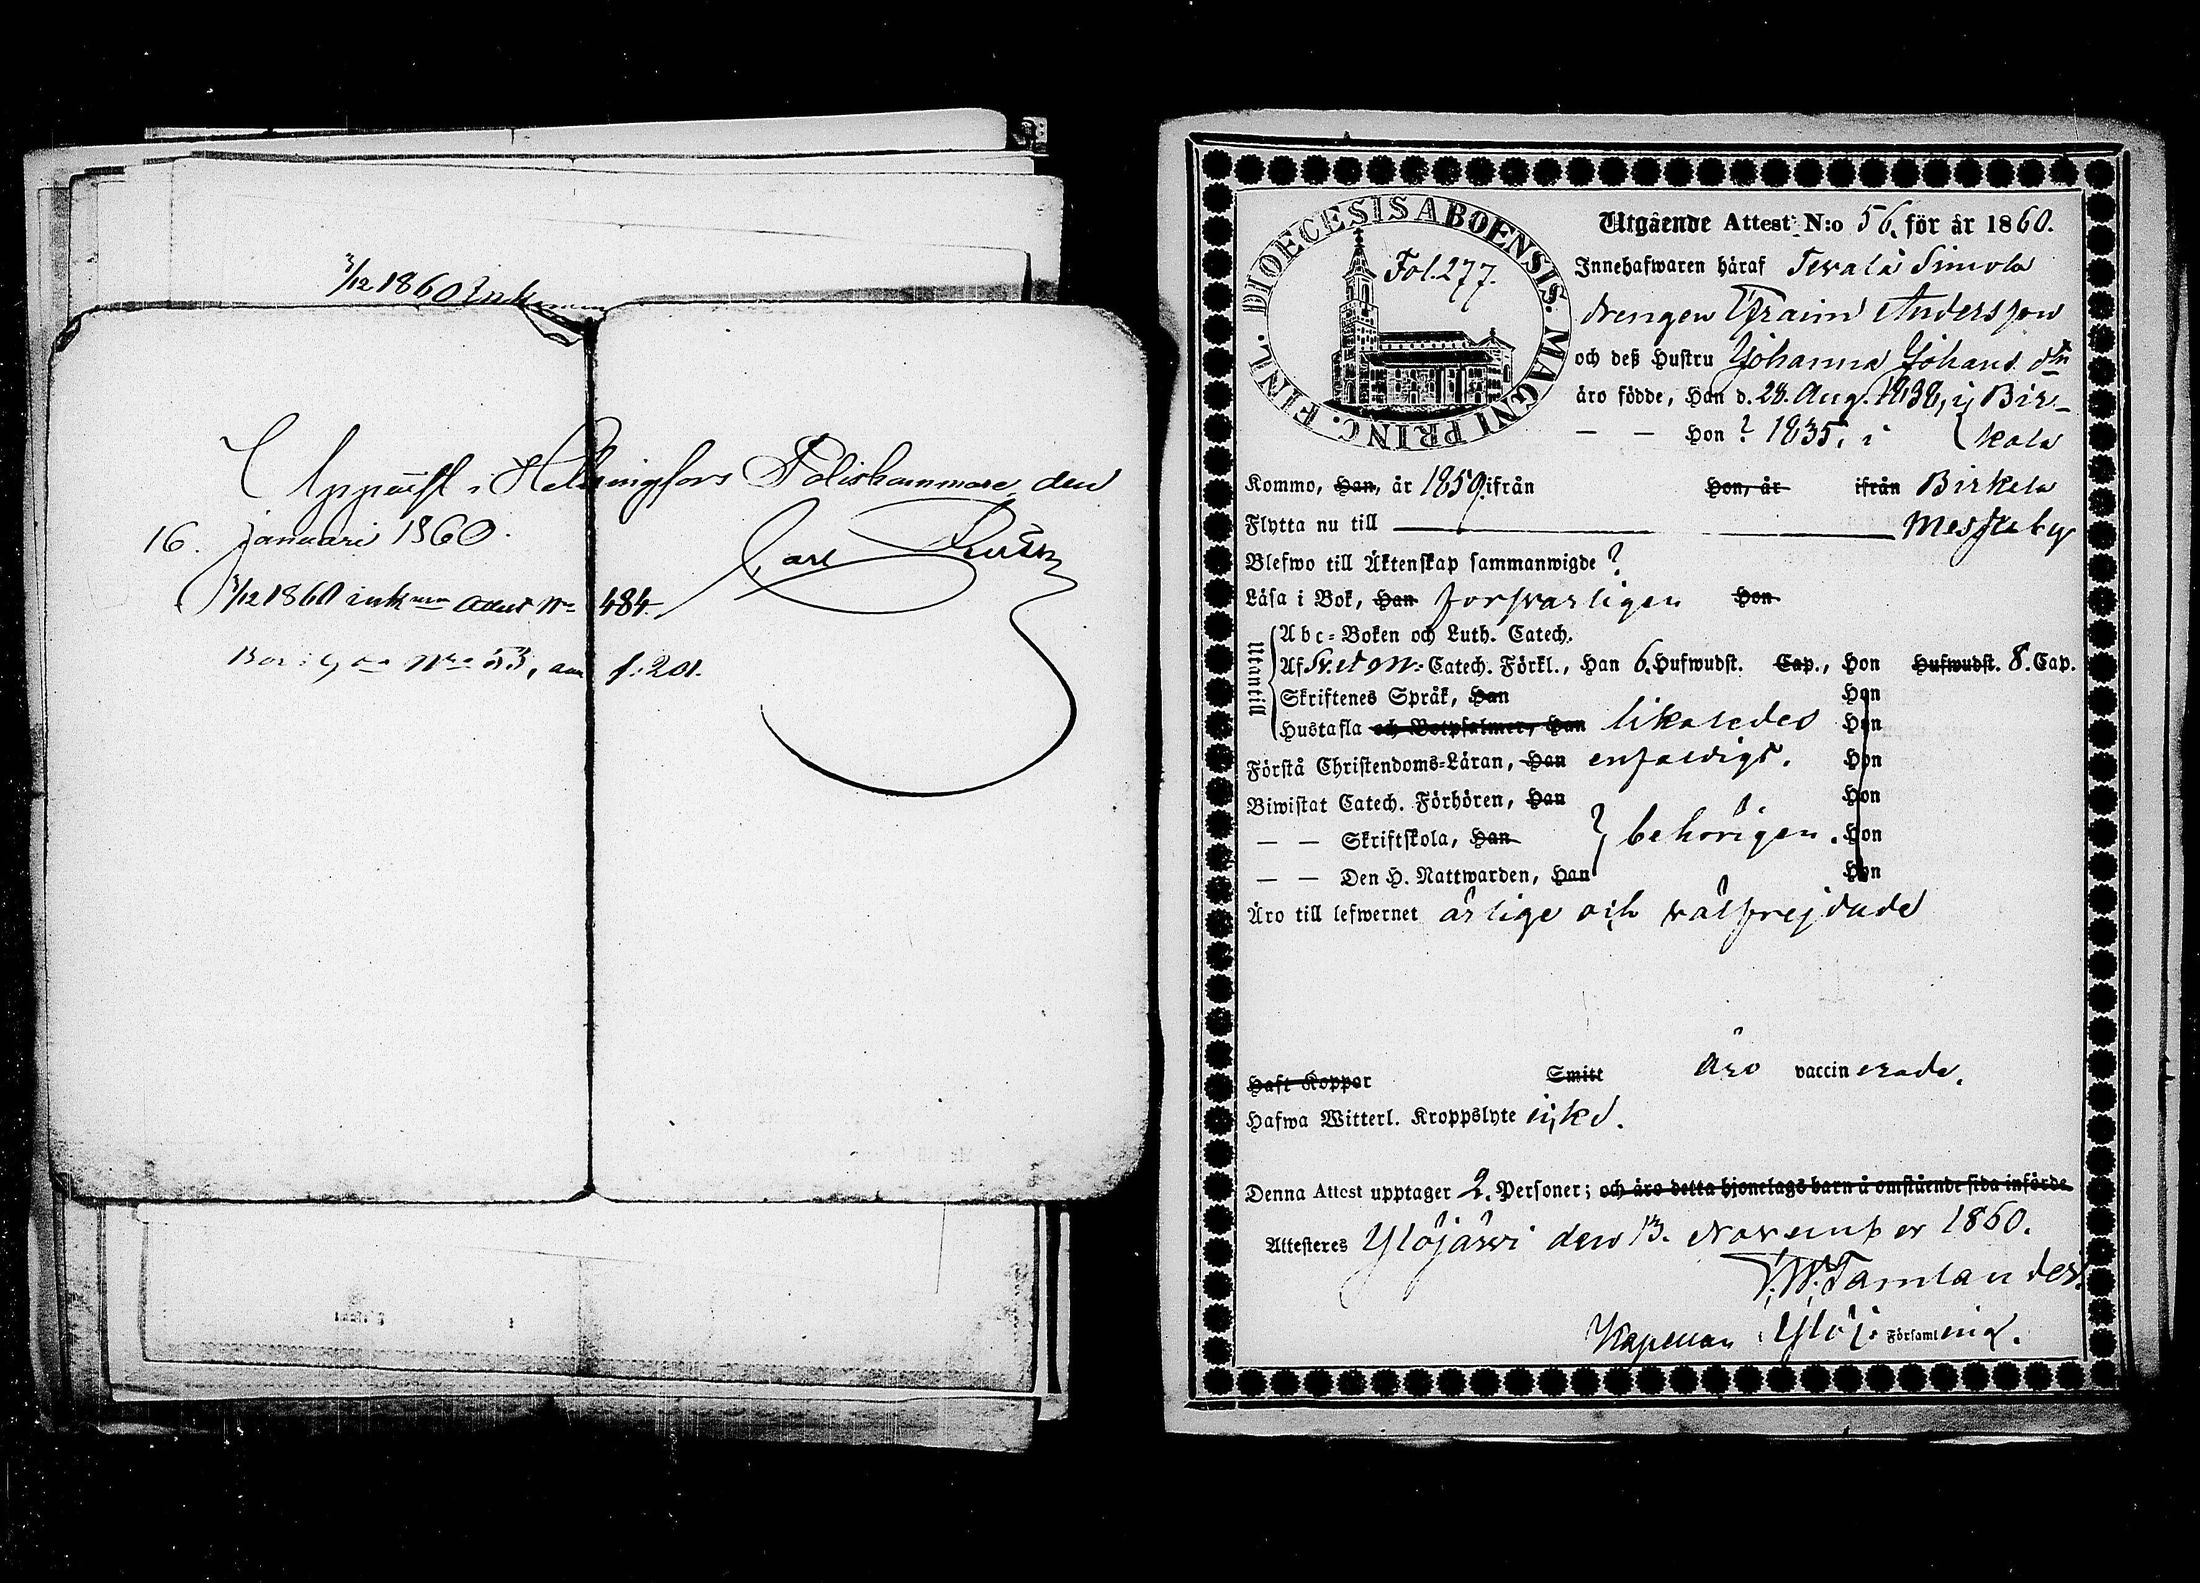 3/12 1860 Inkommen
Uppvist i Helsingfors Poliskammare den
16. Januari 1860.
Carl
3/12 1860 ink Attest No 484.
No 53, f. 201.
DIOECESIS ABOENSIS. MAGNI PRINC. FINL.
Fol. 277.
Utgående Attest N:o 56. för år 1860.
Innehafwaren häraf Terälä Simola
drengen Efraim Andersson
och deß Hustru Johanna Johans dtr
äro födde, Han d. 28. Aug. 1838, i Bir-
— — Hon ? 1835. i kala
Kommo, Han, år 1859. ifrån Hon, år ifrån Birkala
Flytta nu till Messuby
Blefwo till Äktenskap sammanwigde ?
Läsa i Bok, Han försvarligen Hon
Utantill
Abc-Boken och Luth. Catech.
Af Catech. Förkl., Han 6. Hufwudst. Cap., Hon Hufwudst. 8. Cap.
Skriftenes Språk, Han Hon
Hustafla och Botpsalmer, Han likaledes Hon
Förstå Christendoms-Läran, Han enfaldigt. Hon
Biwistat Catech. Förhören, Han Hon
— — Skriftskola, Han behörigen. Hon
— — Den H. Nattwarden, Han Hon
Äro till lefwernet ärlige och välfrejdade
Haft Koppor Smitt äro vaccinerade.
Hafwa Witterl. Kroppslyte icke.
Denna Attest upptager 2. Personer; och äro detta hjonelags barn å omstående sida införde
Attesteres Ylöjärvi den 13. November 1860.
Tamlander
Kapellan i Ylöj. Församling.